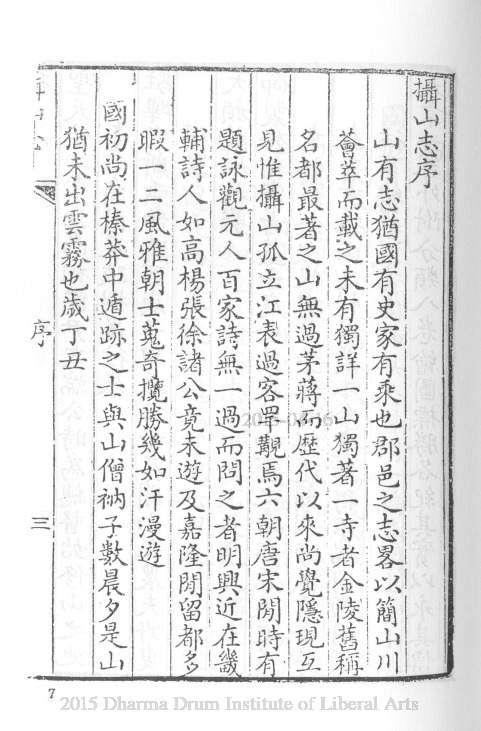 攝山志序
山有志猶國有史家有乘也郡邑之志畧以簡山川
薈萃而載之未有獨詳一山獨著一寺者金陵舊稱
名都最著之山無過茅蔣而歷代以來尚覺隱現互
見惟攝山孤立江表過客罕覯焉六朝唐宋閒時有
題詠觀元人百家詩無一過而問之者明興近在畿
輔詩人如高楊張徐諸公竟未遊及嘉隆閒留都多
暇一二風雅朝士蒐奇攬勝幾如汗漫遊
國初尚在榛莽中遁跡之士與山僧衲子數晨夕是山
猶未出雲霧也歲丁丑
序
三
7
2015 Dharma Drum Institute of Liberal Arts